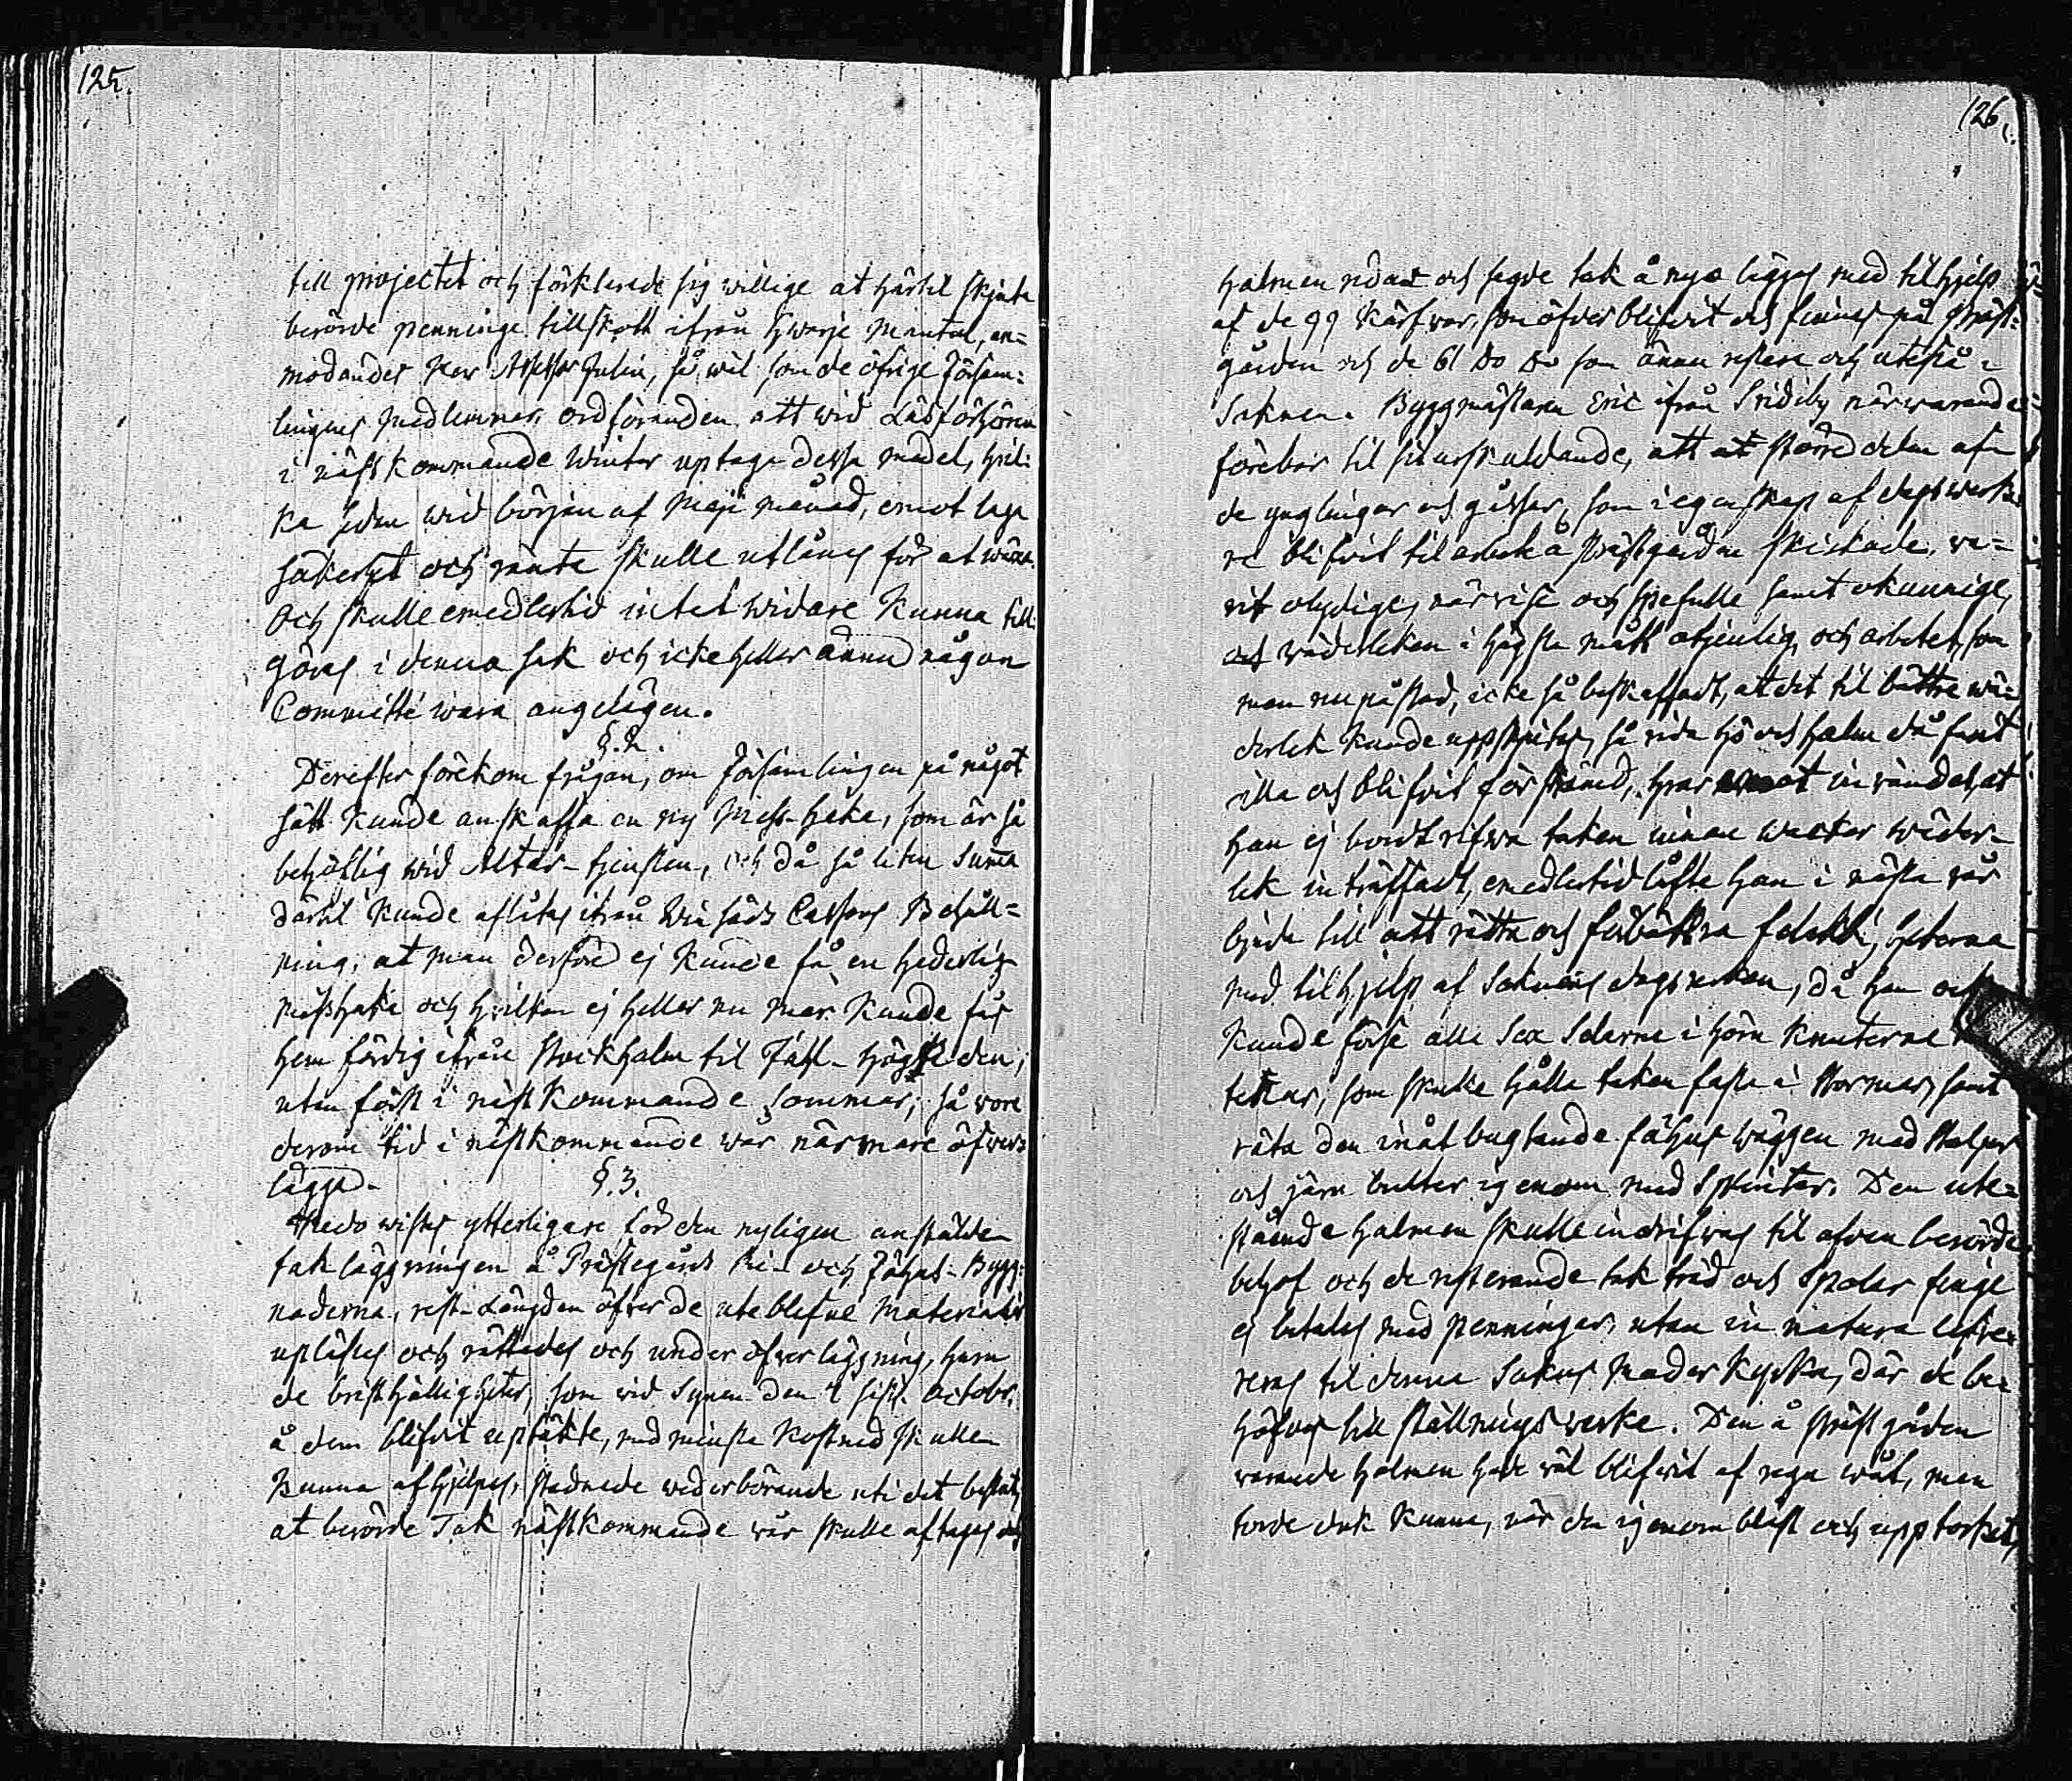 125.
till projectet och förklarade sig willige at härtil skjuta
berörde penninge tillskott ifrån hwarje Mantal, an=
modandes Herr Assessor Julin, så wäl som de öfrige Församlingens
lingens Medlemmar, ordföranden att wid Läsförhören
i nästkommande Winter uptaga dessa medel, hwil=
ka sedan wid början af Maji månad, emot laga
säkerhet och ränta skulle utlånas för at wäxa.
Och skulle emedlertid intet widare kunna till=
göras i denna sak och icke heller ännu någon
Committé wara angelägen.
§. 2.
Derefter förekom frågan, om Församlingen på något
sätt kunde anskaffa en ny Mess-hake, som är så
behöflig wid Altar-tjensten, och då så liten Summa
därtil kunde aflåtas ifrån Cassans Behåll=
ning, at man derföre ej kunde få en hederlig
messhake och hvilken ej heller nu mer kunde fås
hem färdig ifrån Stockholm til Jul-högtiden,
utan först i nästkommande Sommar; så wore
derom tid i nästkommande wår närmare öfwer=
lägga.
§. 3.
Redo wistes ytterligare för den nyligen anstälde
tak läggningen å Prästegårds Ri- och Fähus-Bygg=
naderna, rest-Längden öfver de uteblefne Materialier
uplästes och rättades och under öfverläggning, huru
de bristfälligheter, som wid Synen den 4 sistl. Octobr.
å dem blifvit uptäkte, med minsta kostnad skulle
kunna afhjelpas, stadnade wederbörande uti det beslut,
at berörde Tak nästkommande wår skulle aftagas och
126.
halmen ridas och sagde tak å nyo läggas med tilhjelp
af de 99 Kärfwar, som öfver blifvit och finnas på Präst=
gården och de 61 Do Do som ännu restera och utestå i
Soknen. Byggmästaren Eric ifrån närwarande
förebar til sit urskuldande, att större delen af
de ynglingar och gåssar, som i egenskap af dagswerka=
re blifvit til arbete å Prästgården skickade, wa=
rit olydige, närvise och spefulle samt okunnige,
och wäderleken i högsta mått otjenlig, och arbetet, som
man nu påstod, icke så beskaffadt, at det til bättre wä=
derlek kunde uppskjutas, så wida hö och halm då farit
illa och blifvit förskämd, hvaremot inwändes, at
han ej bordt rifwa taken innan wacker wäder=
lek inträffadt, emedlertid låfte han i nästa wår
bjuda till att rätta och förbättra felaktigheterna
med tilhjelp af Soknens dagsverken, då han ock
kunde förse alla Sex i hörn knutarne
som skulle hålla taken fasta i stormar, samt
räta den inåt bugtande fähus wäggen med Stolpar
och järn bultar igenom med Sprintar. Den ute=
stående halmen skulle indrifvas til ofvan berörde
behof och de resterande tak träd och Spolar finge
ej betalas med penningar, utan in natura lefve=
reras til denna Soknes Moder Kyrka, där de be=
höfvas till ställnings virke. Den å Prästgården
warande halmen hade wäl blifwit af regn wåt, men
torde dock kunna, när den igenom blåst och upptorkat,